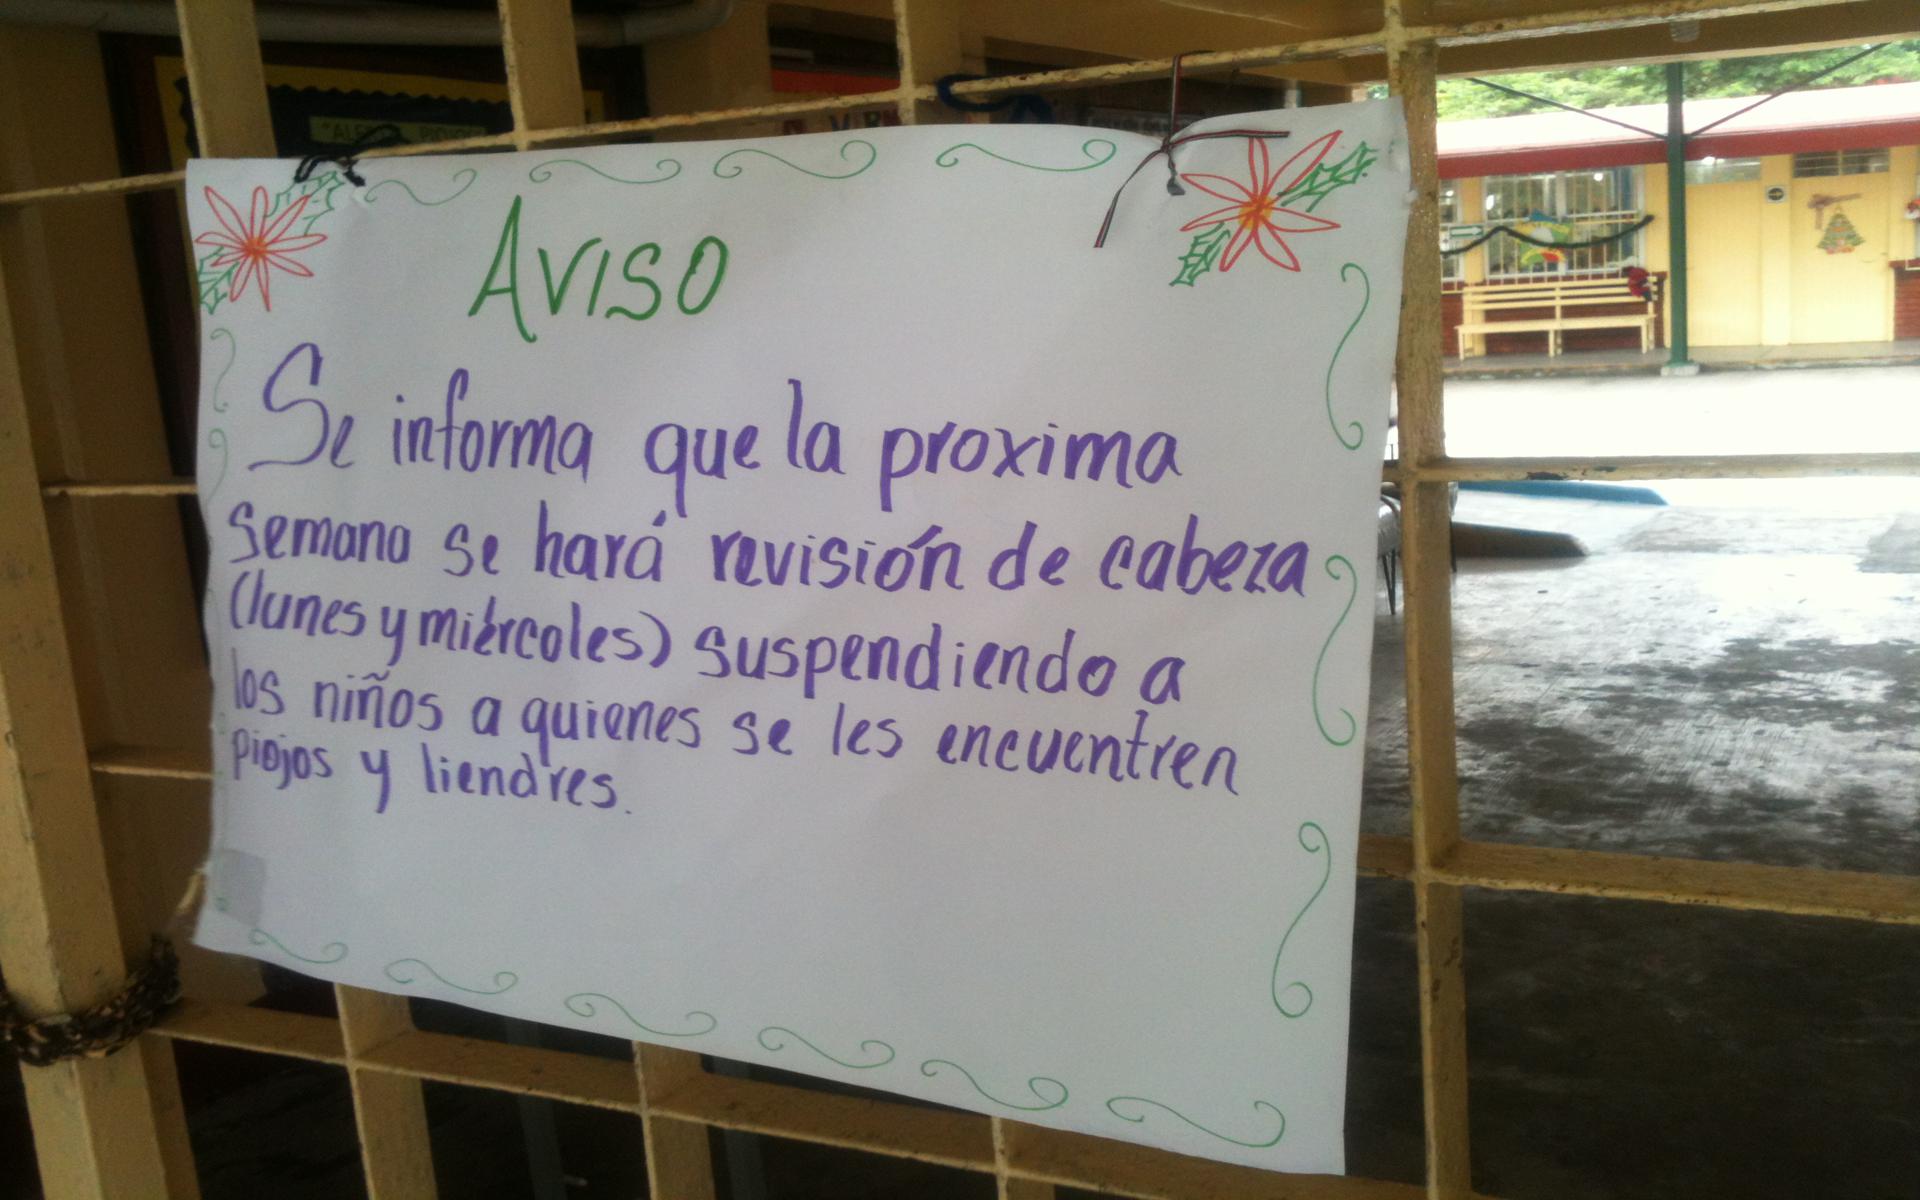 AVISO
Se informa que la proxima
semana se hará revisión de cabeza
(lunes y miércoles) suspendiendo a
los niños a quienes se les encuentren
piojos y liendres.